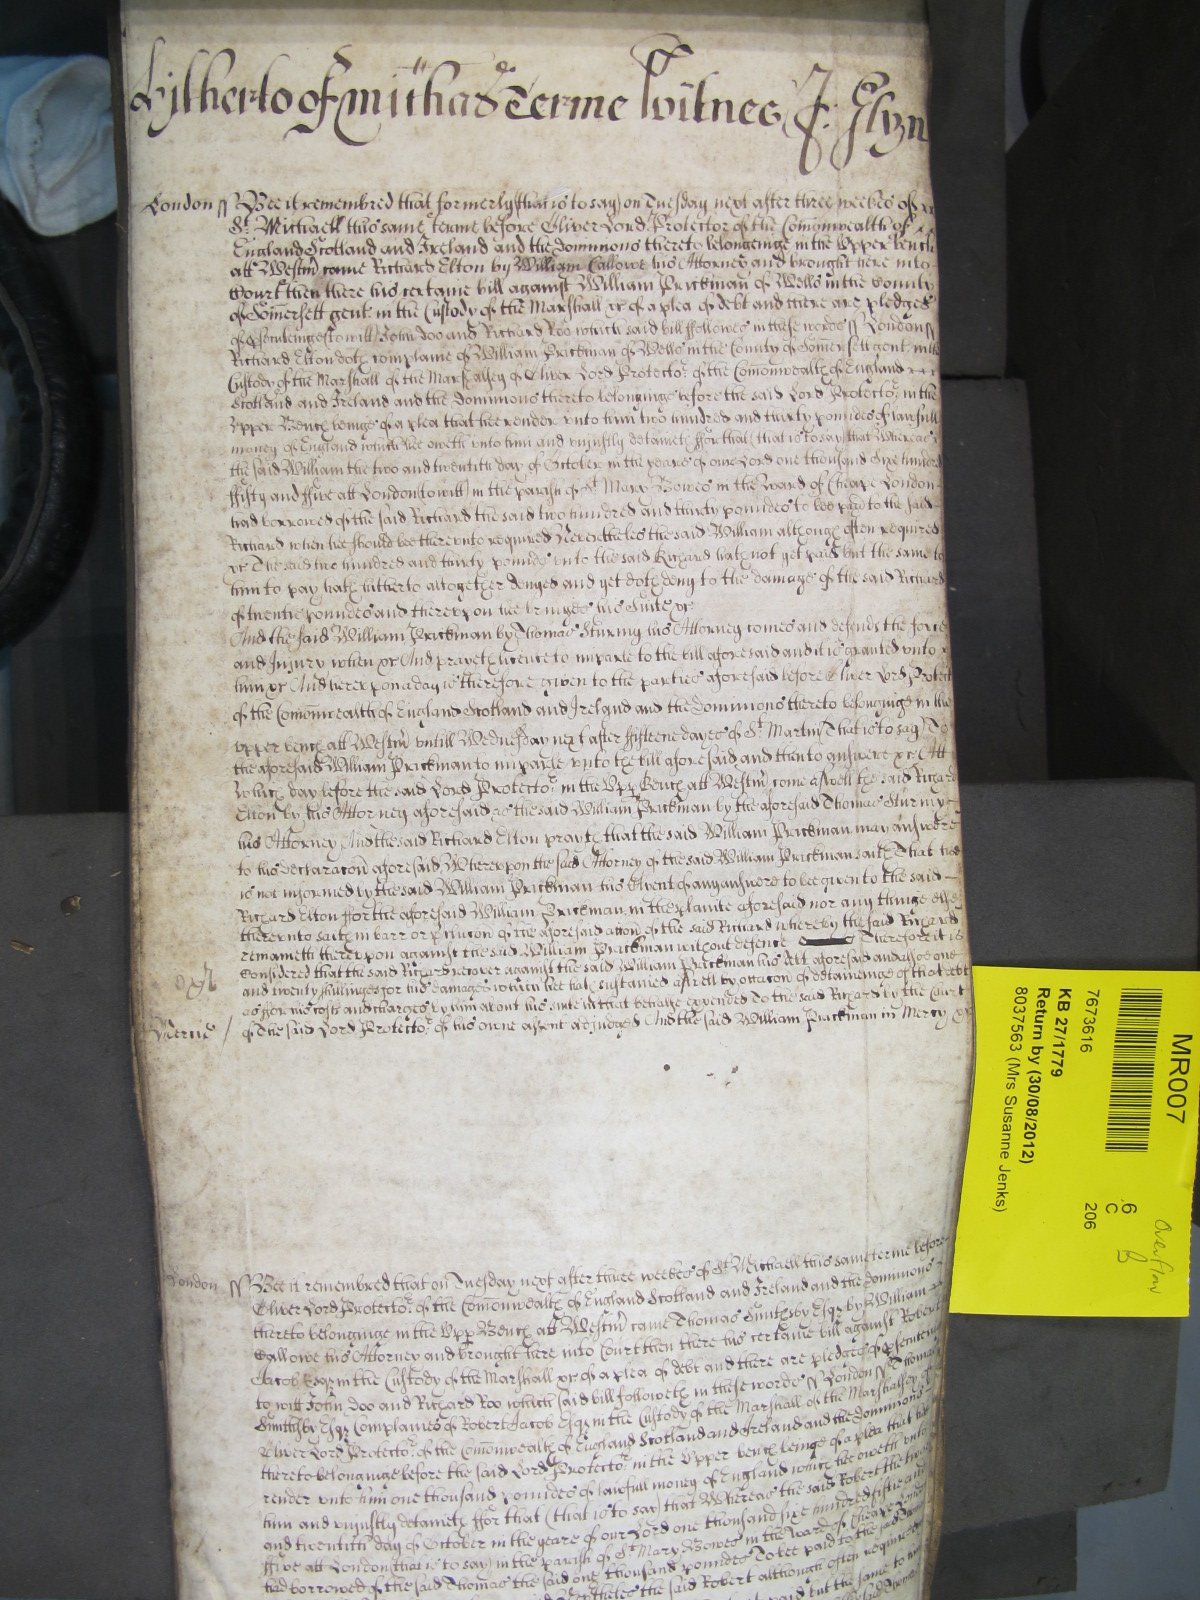 hitherto of Michās Terme Witnes J: Glyn
London ss Bee it remembred that formerly (that is to say) on Tuesday next after three weekes of
St. Michaell this same terme before Oliver Lord Protector of the Comonwealth of
England Scotland and Ireland and the dominions thereto belonginge in the Upper bench
att Westm̄ came Richard Elton by William Callowe his Attorney and brought here into
Court then there his certaine bill against William Prickman of Wells in the County
of Somersett gent in the Custody of the Marshall &c of a plea of debt and there are pledges
of prosecuteinge to witt John Doo and Richard Roo which said bill followes in these words ss London ss
Richard Elton doth complaine of William Prickman of Wells in the County of Somersett gent in the
Custody of the Marshall of the Marshalsey of Oliver Lord Protector of the Comonwealth of England
Scotland and Ireland and the dominions thereto belonginge before the said Lord Protector in the
Upper Bench beinge of a plea that hee render unto him two hundred and thirty poundes of lawfull
money of England which hee oweth unto him and unjustly deteineth ffor that (that is to say) that Whereas
the said William the two and twentith day of October in the yeare of our Lord one thousand Sixe hundred
ffifty and ffive att London (to witt) in the parish of St Mary Bowes in the Ward of Cheape London
had borrowed of the said Richard the said two hundred and thirty poundes to bee paid to the said
Richard when hee should bee thereunto required Neverthelesse the said William although often required
&c The said two hundred and thirty poundes unto the said Richard hath not yet paid but the same to
him to pay hath hitherto altogether denyed and yet doth deny to the damage of the said Richard
of twentie poundes and thereupon hee bringes his Suite &c
And the said William Prickman by Thomas Sturmy his Attorney comes and defends the force
and Injury when &c And prayeth licence to imparle to the bill aforesaid and it is granted unto
him &c And hereupon a day is therefore given to the parties aforesaid before Oliver Lord Protector
of the Comonwealth of England Scotland and Ireland and the dominions thereto belonginge in the
upper bench att Westm̄ untill Wednesday next after ffifteene dayes of St. Martin That is to say
the aforesaid William Prickman to imparle unto the bill aforesaid and then to answere &c Att
which day before the said Lord Protector in the Upp Bench att Westm̄ come aswell the said Richard
Elton by his Attorney aforesaid as the said William Prickman by the aforesaid Thomas Sturmy
his Attorney And the said Richard Elton prayeth that the said William Prickman may answere
to his declaracōn aforesaid Whereupon the said Attorney of the said William Prickman saith That hee
is not informed by the said William Prickman his Client of any answere to bee given to the said
Richard Elton ffor the aforesaid William Prickman in the plainte aforesaid nor any thinge else
thereunto saith in barr or of the aforesaid accōn of the said Richard whereby the said Richard
remaineth thereupon against the said William Prickman without defence Therefore it is
Considered that the said Richard recover against the said William Prickman his debt aforesaid and alsoe one
and twenty shillinges for his damages which hee hath sustained aswell by occacon of deteineinge of that debt
as ffor his costs and charges by him about his suite in that behalfe expended To the said Richard by the Court
Mercie / of the said Lord Protector of his owne assent adjudged And the said William Prickman in Mercy &c
London ss Bee it remembred that on Tuesday next after three weekes of St Michaell this same terme before
Oliver Lord Protector of the Comonwealth of England Scotland and Ireland and the dominions
thereto belonginge in the Upp Bench att Westm̄ came Thomas Smithsby Esqr by William
Callowe his Attorney and brought here into Court then there his certaine bill against Robert
Jacob Esqr in the Custody of the Marshall &c of a plea of debt and there are pledges of prosecuteinge
to witt John Doo and Richard Roo which said bill followeth in these words ss London ss Thomas
Smithsby Esqr Complaines of Robert Jacob Esqr in the Custody of the Marshall of the Marshalsey of
Oliver Lord Protector of the Comonwealth of England Scotland and Ireland and the dominions
thereto belonginge before the said Lord Protector in the Upper bench beinge of a plea that hee
render unto him one thousand poundes of lawfull money of England which hee oweth unto
him and unjustly deteineth ffor that (that is to say) that Whereas the said Robert the two
and twentith day of October in the yeare of our Lord one thousand sixe hundred fiftie and
ffive att London (that is to say) in the parish of St Mary Bowes in the Ward of Cheape London
had borrowed of the said Thomas the said one thousand poundes To bee paid to the said
the said Robert although often required
paid but the same to
MR007
7673616
.6
C
206
KB 27/1779
Return by (30/08/2012)
8037563 (Mrs Susanne Jenks)